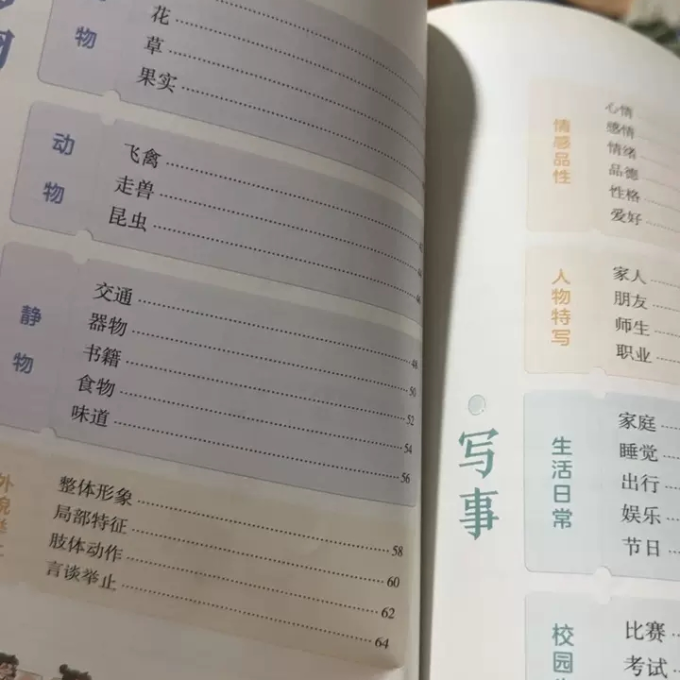 物
花
草
果实
动物
飞禽
走兽
昆虫
静物
交通 48
器物 50
书籍 52
食物 54
味道 56
外貌举
整体形象 58
局部特征 60
肢体动作 62
言谈举止 64
情感品性
心情
感情
情绪
品德
性格
爱好
人物特写
家人
朋友
师生
职业
写事
生活日常
家庭
睡觉
出行
娱乐
节日
校园
比赛
考试